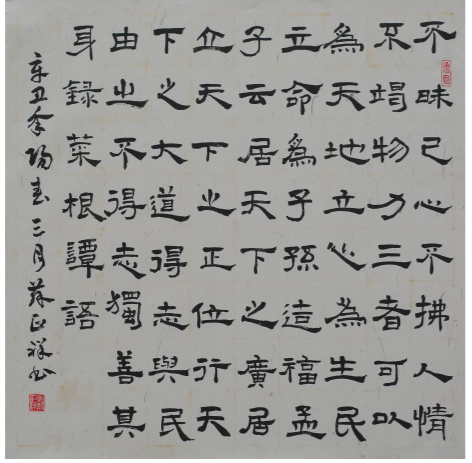 不昧己心不拂人情
不竭物力三者可以
為天地立心為生民
立命為子孫造福孟
子云居天下之廣居
立天下之正位行天
下之大道得志與民
由之不得志獨善其
身錄菜根譚語
辛丑年陽春三月正祥书